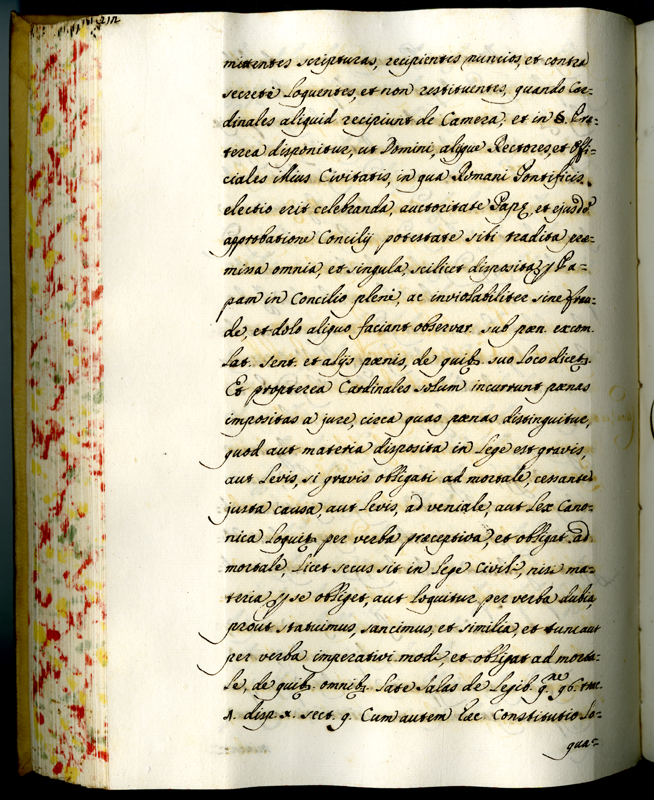 mittentes scripturas, recipientes nuncios, et contra
secretè loquentes, et non restituentes, quando Car-
dinales aliquid recipiunt de Camera, et in §. Prę-
terea disponitur, ut Domini, alijque Rectores, et Offi-
ciales illius Civitatis, in qua Romani Pontificis
electio erit celebranda, auctoritate Papę, et ejusdē
approbatione Concilij potestate sibi tradita prę-
missa omnia, et singula, scilicet disposita p Pa-
pam in Concilio plenè, ac inviolabiliter sine frau-
de, et dolo aliquo faciant observar. sub pœn. excom.
lat. sent. et alijs pœnis, de quib. suo loco dicet.
Et propterea Cardinales solum incurrunt pœnas
impositas a jure, circa quas pœnas distinguitur,
quod aut materia disposita in Lege est gravis,
aut levis, si gravis obligati ad mortale, cessante
justa causa, aut levis, ad veniale, aut Lex Cano-
nica loquit. per verba præceptiva, et obligat ad
mortale, licet secus sit in Lege Civili, nisi ma-
teria p se obliget, aut loquitur per verba dubia,
prout statuimus, sancimus, et similia, et tunc aut
per verba imperativi modi, et obligat ad morta-
le, de quib. omnib. late Salas de Legib. q. 96. trac.
1. disp. x. sect. 9. Cum autem hæc Constitutio lo-
qua-